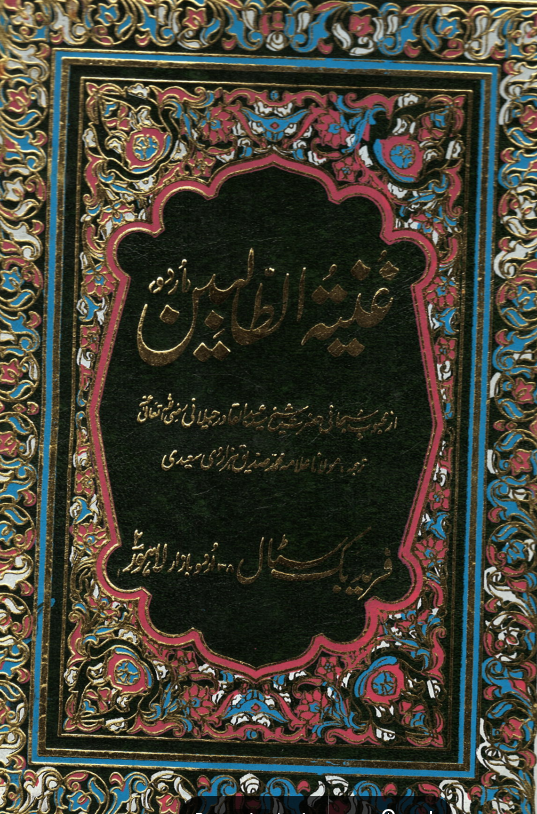 غنیۃ الطالبین اُردو
از محبوب سبحانی حضرت شیخ سید عبدالقادر جیلانی رضی اللہ تعالیٰ عنہ
ترجمہ: مولانا علامہ محمد صدیق ہزاروی سعیدی
فرید بک سٹال ۳۸ اُردو بازار لاہور